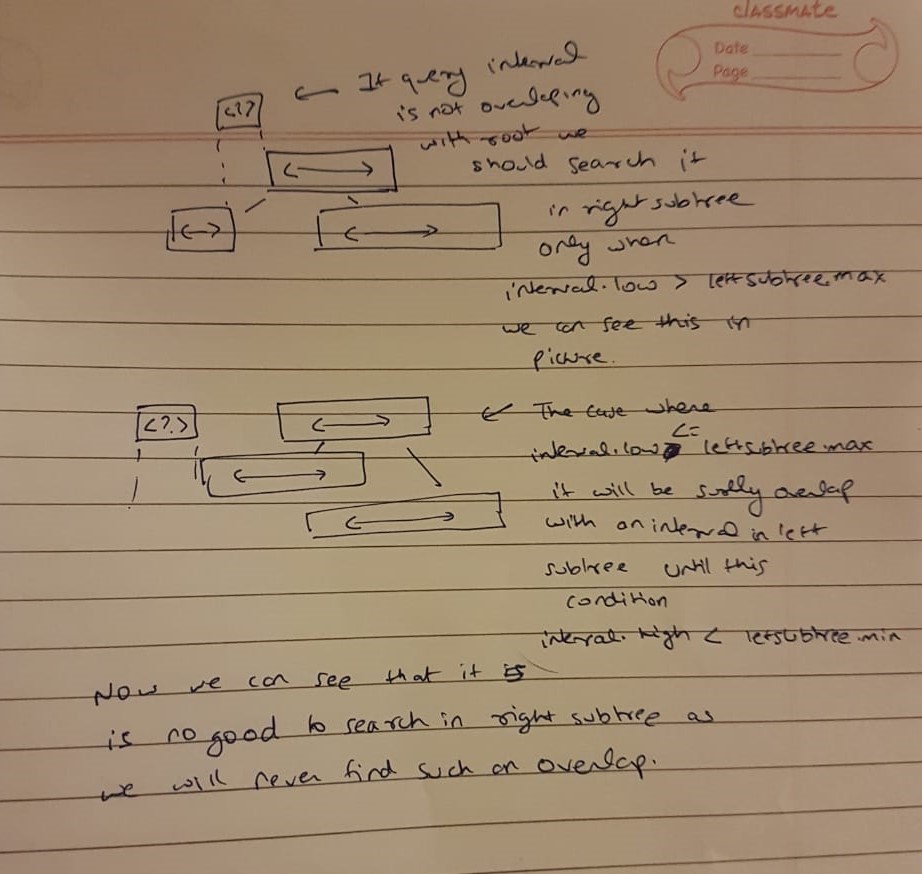 classmate
Date
Page
<?>
← If query interval
is not overlaping
with root we
should search it
in right subtree
only when
interval.low > leftsubtree.max
we can see this in
picture.
<?>
← The case where
interval.low <= leftsubtree.max
it will be surelly overlap
with an interval in left
subtree until this
condition
interval.high < leftsubtree.min
Now we can see that it
is no good to search in right subtree as
we will never find such an overlap.